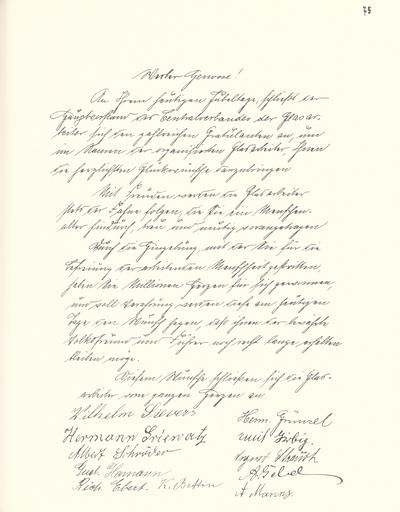 75
Werter Genosse!
An Ihrem heutigen Jubeltage, schließt der
Hauptvorstand des Centralverbandes der Glasar-
beiter sich den zahlreichen Gratulanten an, um
im Namen der organisierten Glasarbeiter Ihnen
die herzlichsten Glückwünsche darzubringen
Mit Freuden werden die Glasarbeiter
stets der Fahne folgen, die Sie ein Menschen-
alter hindurch, treu und mutig vorangetragen
Durch die Hingebung, mit der Sie für die
Befreiung der arbeitenden Menschheit gestritten,
haben Sie Millionen Herzen für sich gewonnen,
und voll Verehrung werden diese am heutigen
Tage den Wunsch hegen, daß ihnen der bewährte
Volksfreund und Führer noch recht lange erhalten
bleiben möge.
Diesem Wunsche schließen sich die Glas-
arbeiter von ganzem Herzen an
Wilhelm Sievers
Herm. Grünzel
Hermann Grienatz
Emil Girbig.
Albert Schröder
August Strauch
Gust. Hamann
A. Gebel
Rich. Ebert. K. Bettin
A Manns.